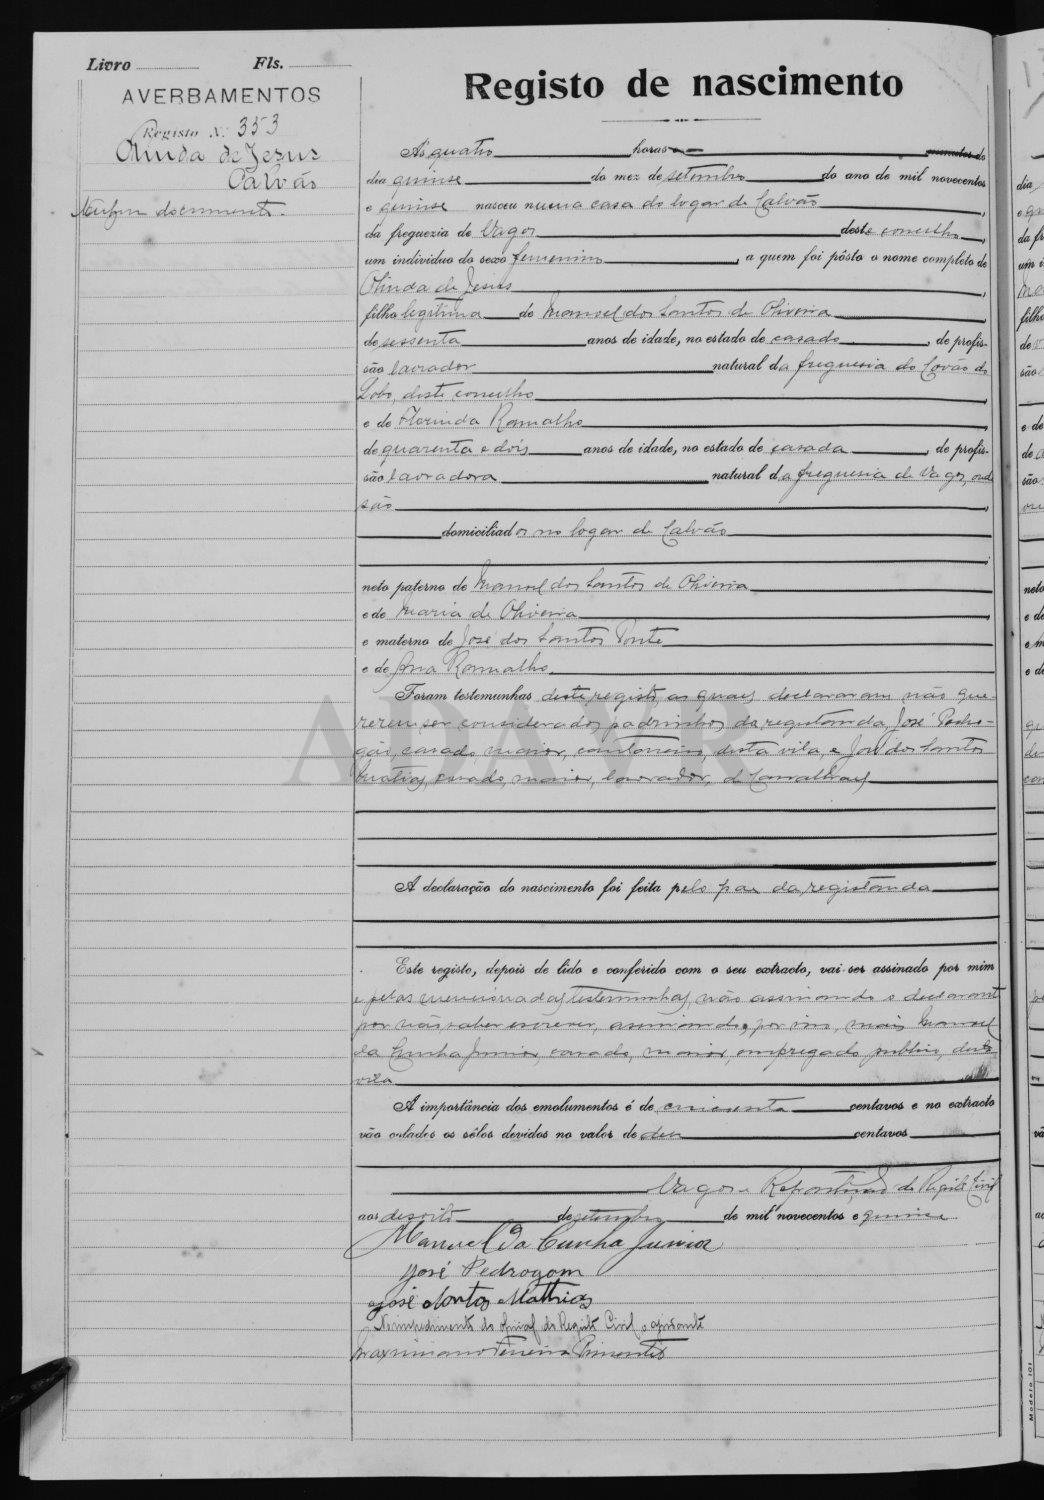 Livro Fls.
AVERBAMENTOS
Registo N.º 353
Olinda de Jesus
Calvão
Nenhum documento.
Registo de nascimento
Ás quatro horas minutos do
dia quinse do mez de setembro do ano de mil novecentos
e quinse nasceu numa casa do logar de Calvão,
da freguezia de Vagos deste concelho,
um individuo do sexo femenino, a quem foi pôsto o nome completo de
Olinda de Jesus,
filha legitima de Manuel dos Santos de Oliveira
de sessenta anos de idade, no estado de casado, de profis-
são lavrador natural da freguesia do Covão do
Lobo, deste concelho,
e de Florinda Ramalho,
de quarenta e dois anos de idade, no estado de casada, de profis-
são lavradora natural da freguesia de Vagos, onde
são,
domiciliados no logar de Calvão
neto paterno de Manuel dos Santos de Oliveira
e de Maria de Oliveira,
e materno de José dos Santos Ponte
e de Ana Ramalho
Foram testemunhas deste registo as quaes declararam não que-
rerem ser considerados padrinhos da registanda, José Pedro-
gão, casado, maior, cantoneiro, desta vila, e José dos Santos
Matias, casado, maior, lavrador, de
A declaração do nascimento foi feita pelo pae da registanda
Este registo, depois de lido e conferido com o seu extracto, vai ser assinado por mim
e pelas mencionadas testemunhas, não assinando o declarante
por não saber escrever, assinando, por isso, mais Manuel
da Cunha Junior, casado, maior, empregado publico, desta
vila
A importância dos emolumentos é de cincoenta centavos e no extracto
vão colados os sêlos devidos no valor de dez centavos
Vagos e Repartição do Registo Civil
aos desoito de setembro de mil novecentos e quinse
Manuel da Cunha Junior
José Pedrogam
José Santos Mathias
No impedimento do oficial do Registo Civil o ajudante
Maximiano Ferreira Pimentel
ADAVR
Modelo 101